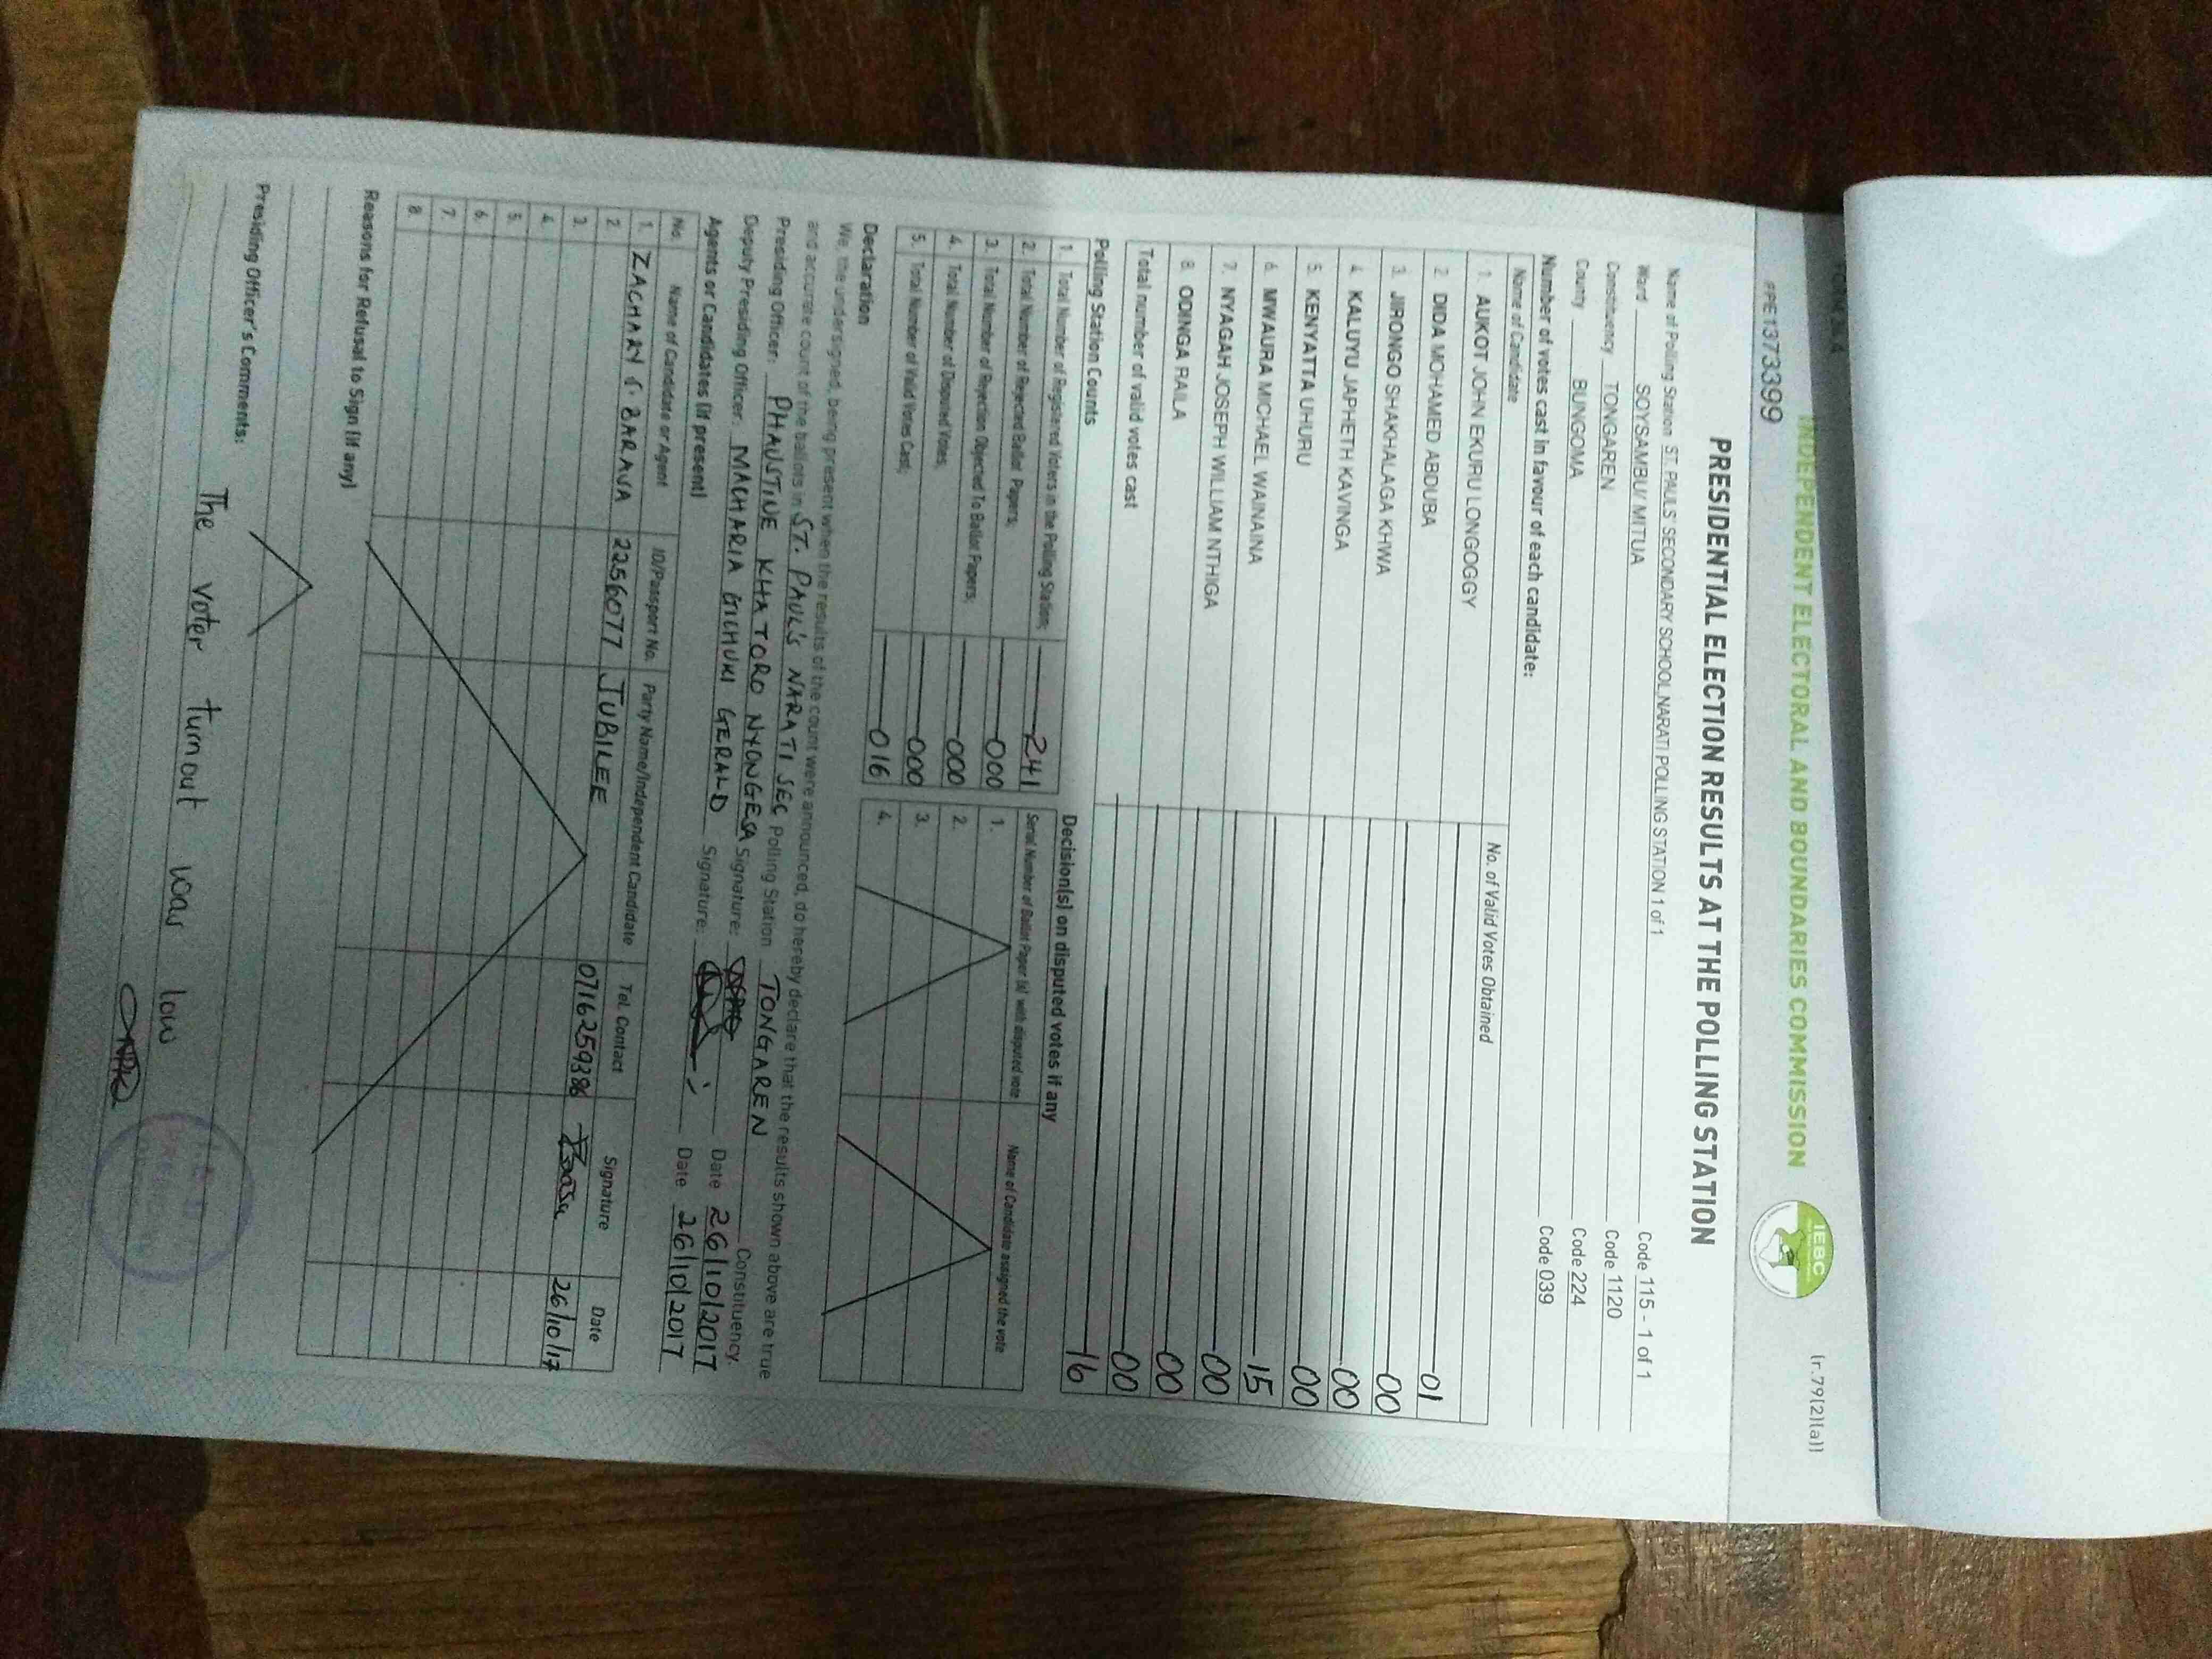 FORM 34A
(r.79(2)(a))
INDEPENDENT ELECTORAL AND BOUNDARIES COMMISSION
IEBC
PPE1373399
PRESIDENTIAL ELECTION RESULTS AT THE POLLING STATION
Name of Polling Station ST. PAULS' SECONDARY SCHOOL NARATI POLLING STATION 1 of 1 Code 115 - 1 of 1
Ward SOYSAMBU/ MITUA Code 1120
Constituency TONGAREN Code 2224
County BUNGOMA Code 039
Number of votes cast in favour of each candidate:
Name of Candidate No. of Valid Votes Obtained
1. AUKOT JOHN EKURU LONGOGGY 01
2. DIDA MOHAMED ABDUBA 00
3. JIRONGO SHAKHALAGA KHWA 00
4. KALUYU JAPHETH KAVINGA 00
5. KENYATTA UHURU 15
6. MWAURA MICHAEL WAINAINA 00
7. NYAGAH JOSEPH WILLIAM NTHIGA 00
8. ODINGA RAILA 00
Total number of valid votes cast 16
Polling Station Counts Decision(s) on disputed votes if any
1. Total Number of Registered Voters in the Polling Station; 241 Serial Number of Ballot Paper (s) with disputed vote Name of Candidate assigned the vote
2. Total Number of Rejected Ballot Papers; 000 1.
3. Total Number of Rejection Objected To Ballot Papers; 000 2.
4. Total Number of Disputed Votes; 000 3.
5. Total Number of Valid Votes Cast; 016 4.
Declaration
We, the undersigned, being present when the results of the count were announced, do hereby declare that the results shown above are true
and accurate count of the ballots in ST. PAUL'S NARATI SEC Polling Station TONGAREN Constituency.
Presiding Officer: PHAUSTINE KHATORO NYONGESA Signature: Date 26/10/2017
Deputy Presiding Officer: MACHARIA GICHUKI GERALD Signature: Date 26/10/2017
Agents or Candidates (if present)
No. Name of Candidate or Agent ID/Passport No. Party Name/Independent Candidate Tel. Contact Signature Date
1. ZACHARY S. BARAVA 2256077 JUBILEE 0716259386 26/10/17
2.
3.
4.
5.
6.
7.
8.
Reasons for Refusal to Sign (if any)
Presiding Officer's Comments:
The voter turnout was low